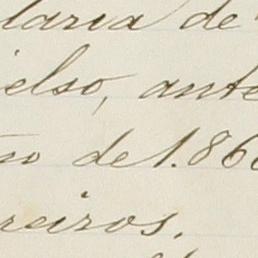 laria de
ielso, ante
no de 1.86
reiros.